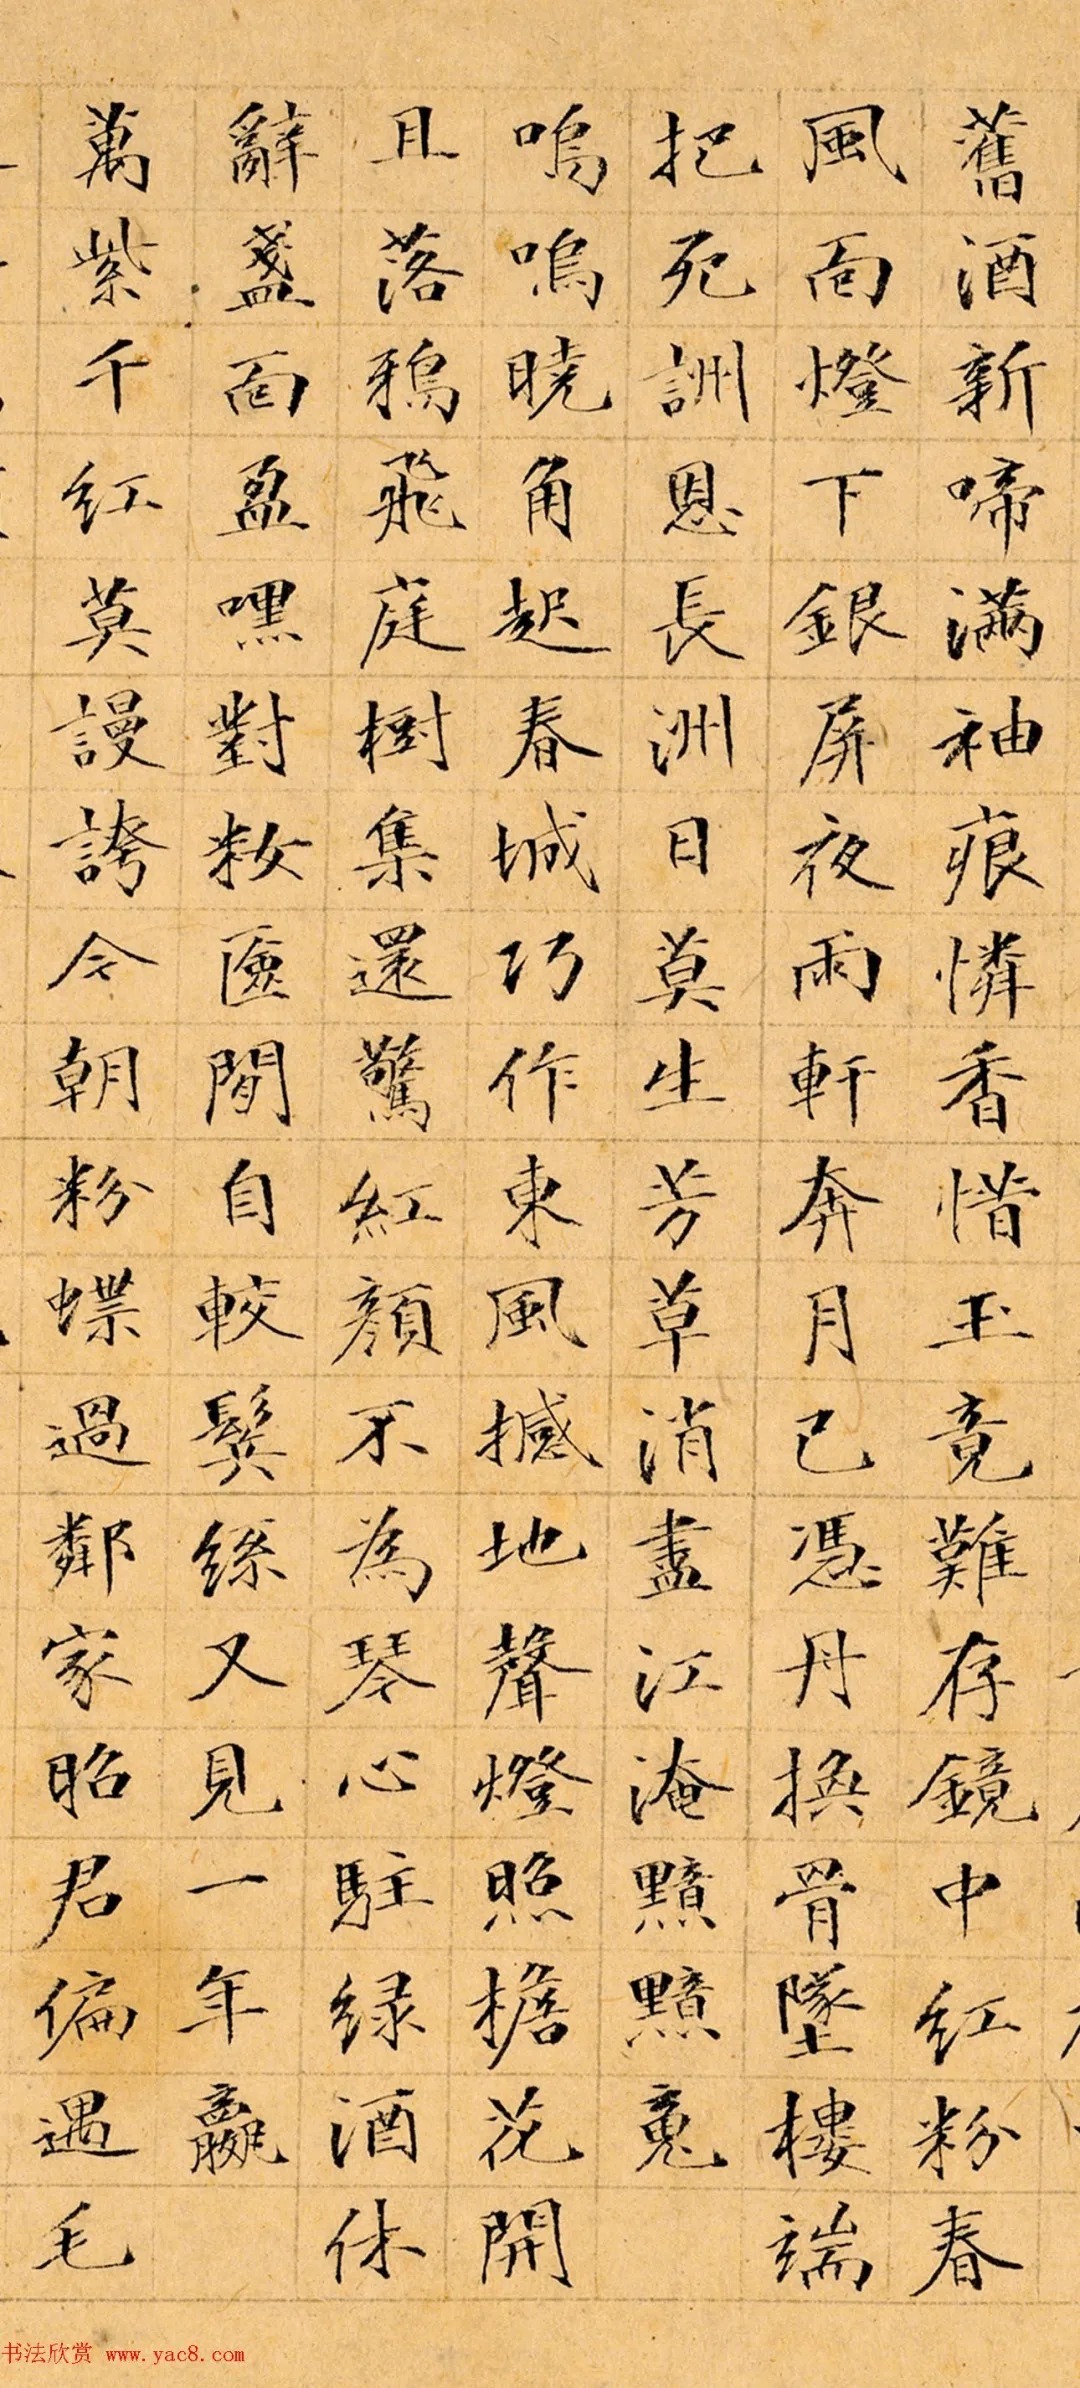 舊酒新啼滿袖痕憐香惜玉竟難存鏡中紅粉春
風面燈下銀屏夜雨軒奔月已憑丹換骨墜樓端
把死詶恩長洲日莫生芳草消盡江淹黯黯魂
嗚嗚曉角起春城巧作東風撼地聲燈照檐花開
且落鴉飛庭樹集還驚紅顏不為琴心駐綠酒休
辭盞面盈嘿對粧匳閒自較鬂絲又見一年贏
萬紫千紅莫謾誇今朝粉蝶過鄰家昭君偏遇毛
书法欣赏 www.yac8.com